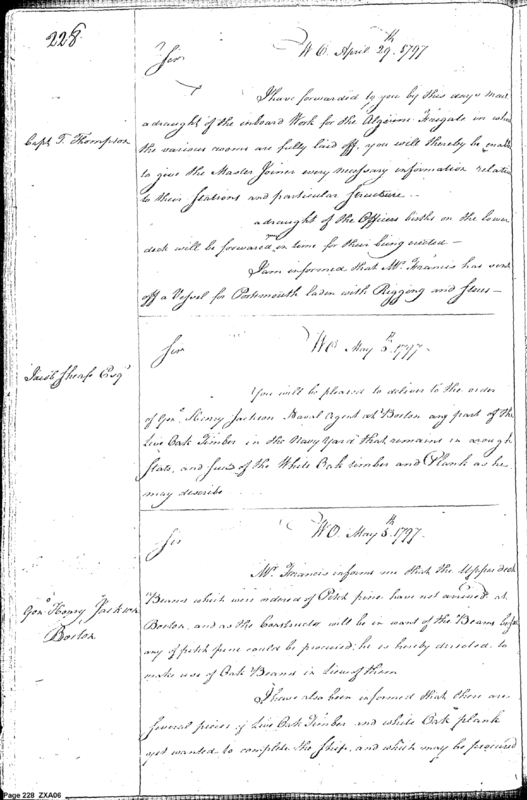 228
Sir W O. April 29th 1797
I have forwarded to you by this day's mail
Capt. T. Thompson
a draught of the inboard Work for the Algerine Frigate in which
the various rooms are fully laid off, you will thereby be
to give the Master Joiner every necessary information
to their Stations and particular Structure -
a draught of the Officers births on the lower
deck will be forwarded in time for their being erected -
I am informed that Mr. Francis has sent
off a Vessel for Portsmouth laden with Rigging and -
Sir WO May 5th 1797.
Jacob Sheafe Esqr
You will be pleased to deliver to the order
of Genl. Henry Jackson Naval Agent at Boston any part of the
Live Oak Timber in the Navy Yard that remains in a rough
State, and such of the White Oak timber and Plank as he
may describe
Sir WO. May 5th 1797.
Mr. Francis informs me that the Upper deck
Genl. Henry Jackson
Beams which were ordered of Pitch pine have not arrived at
Boston
Boston, and as the Constructor will be in want of the Beams before
any of pitch pine could be procured; he is hereby directed to
make use of Oak Beams in lieu of them
I have also been informed that there are
several pieces of Live Oak Timber and white Oak plank
yet wanted to complete the Ship, and which may be procured
Page 228 ZXA06